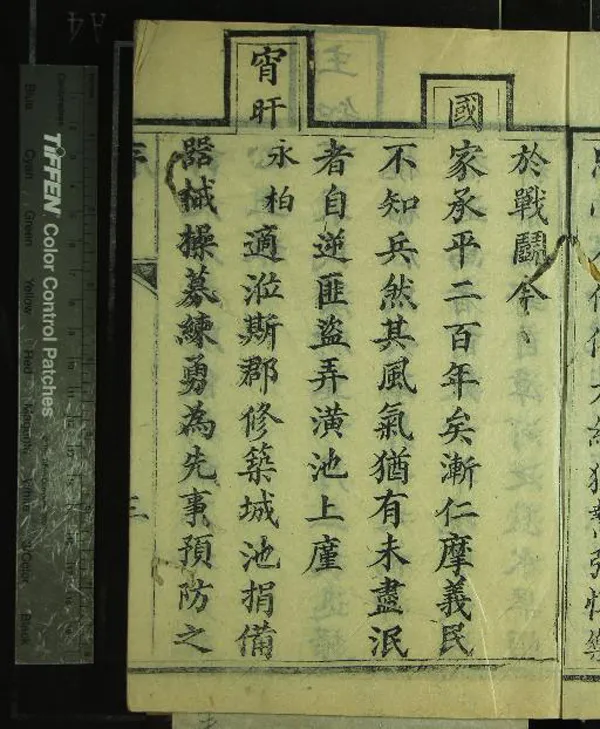 於戰鬬今
國家承平二百年矣漸仁摩義民
不知兵然其風氣猶有未盡泯
者自逆匪盜弄潢池上廑
宵旰
永柏適涖斯郡修築城池捐備
器械操募練勇為先事預防之
序
三
TIFFEN Color Control Patches
Blue
Cyan
Green
Yellow
Red
Magenta
White
3/Color
Black